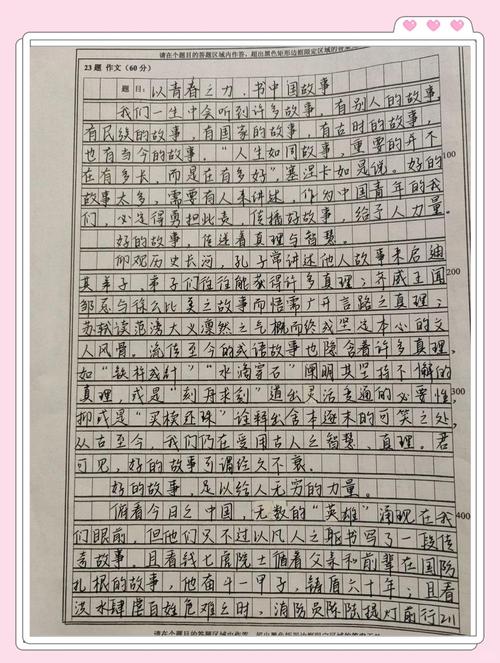 请在个题目的答题区域内作答、超出黑色矩形边框限定区域的答案
23题 作文(60分)
题目:以青春之力,书中国故事
我们一生中会听到许多故事,有别人的故事,
有民族的故事,有国家的故事,有古时的故事,
也有当今的故事。“人生如同故事,重要的并不
100
在有多长,而是在有多好”塞涅卡如是说。好的
故事太多,需要有人来讲述,作为中国青年的我
们,必定得勇担此责,传播好故事,给予人力量。
好的故事,传送着真理与智慧。
仰观历史长河,孔子常讲述他人故事来启迪
200
其弟子,弟子们往往能获得许多真理;齐威王闻
邹忌与徐公比美之故事而悟需广开言路之真理;
苏轼读范滂大义凛然之气概而终成坚定本心的文
人风骨。流传至今的成语故事也隐含着许多真理,
如“铁杵成针”“水滴穿石”阐明其坚持不懈的
300
真理,或是“刻舟求剑”道出灵活变通的必要性,
抑或是“买椟还珠”诠释出舍本逐末的可笑之处,
从古至今,我们仍在受用古人之智慧、真理。君
可见,好的故事引谓经久不衰。
好的故事,足以给人无穷的力量。
400
俯看今日之中国,无数的“英雄”涌现在我
们眼前,但他们只不过以凡人之躯书写了一段传
奇故事。且看钱七虎院士循着父亲和前辈在国防
扎根的故事,他奋斗一甲子,铸盾六十年;且看
洪水肆虐百姓危难之时,消防员陈陆提灯前行
请在个题目的答题区域内作答、超出黑色矩形边框限定区域的答案无效